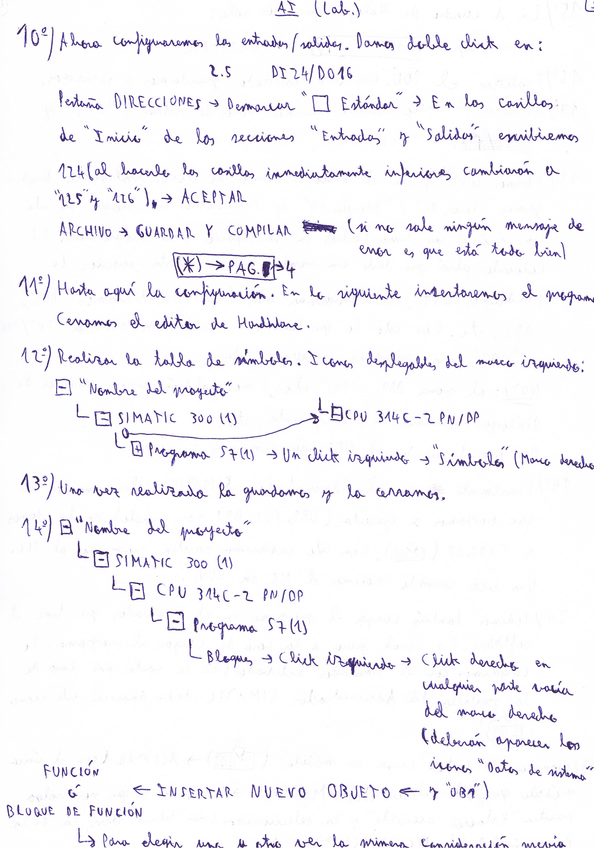 AI (Lab.)
10º) Ahora configuraremos las entradas/salidas. Damos doble click en:
2.5 DI24/DO16
Pestaña DIRECCIONES → Desmarcar "□ Estándar" → En las casillas
de "Inicio" de las secciones "Entradas" y "Salidas" escribiremos
124 (al hacerlo las casillas inmediatamente inferiores cambiarán a
"125" y "126"). → ACEPTAR
ARCHIVO → GUARDAR Y COMPILAR (si no sale ningún mensaje de
error es que está todo bien)
(*) → PAG. → 4
11º) Hasta aquí la configuración. En lo siguiente insertaremos el programa
Cerramos el editor de Hardware.
12º) Realizar la tabla de símbolos. Iconos desplegables del marco izquierdo:
⊟ "Nombre del proyecto"
└ ⊟ SIMATIC 300 (1) └ ⊟ CPU 314C-2 PN/DP
└ ⊞ Programa S7(1) → Un click izquierdo → "Símbolos" (Marco derecho
13º) Una vez realizada la guardamos y la cerramos.
14º) ⊟ "Nombre del proyecto"
└ ⊟ SIMATIC 300 (1)
└ ⊟ CPU 314C-2 PN/DP
└ ⊟ Programa S7(1)
└ Bloques → Click izquierdo → Click derecho en
cualquier parte vacía
del marco derecho
(deberán aparecer los
iconos "Datos de sistema"
FUNCIÓN
ó ← INSERTAR NUEVO OBJETO ← y "OB1")
BLOQUE DE FUNCIÓN
↳ Para elegir una u otro ver la primera consideración previa